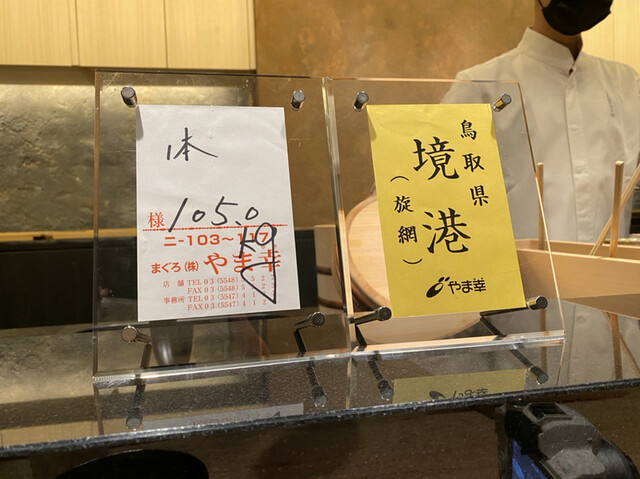 1本
様 105.0
二-103~117
まぐろ(株) やま幸
店舗 TEL 03 (5548)
FAX 03 (5548)
事務所 TEL 03 (5547)
FAX 03 (5547)
鳥取県
境港
(旋網)
やま幸